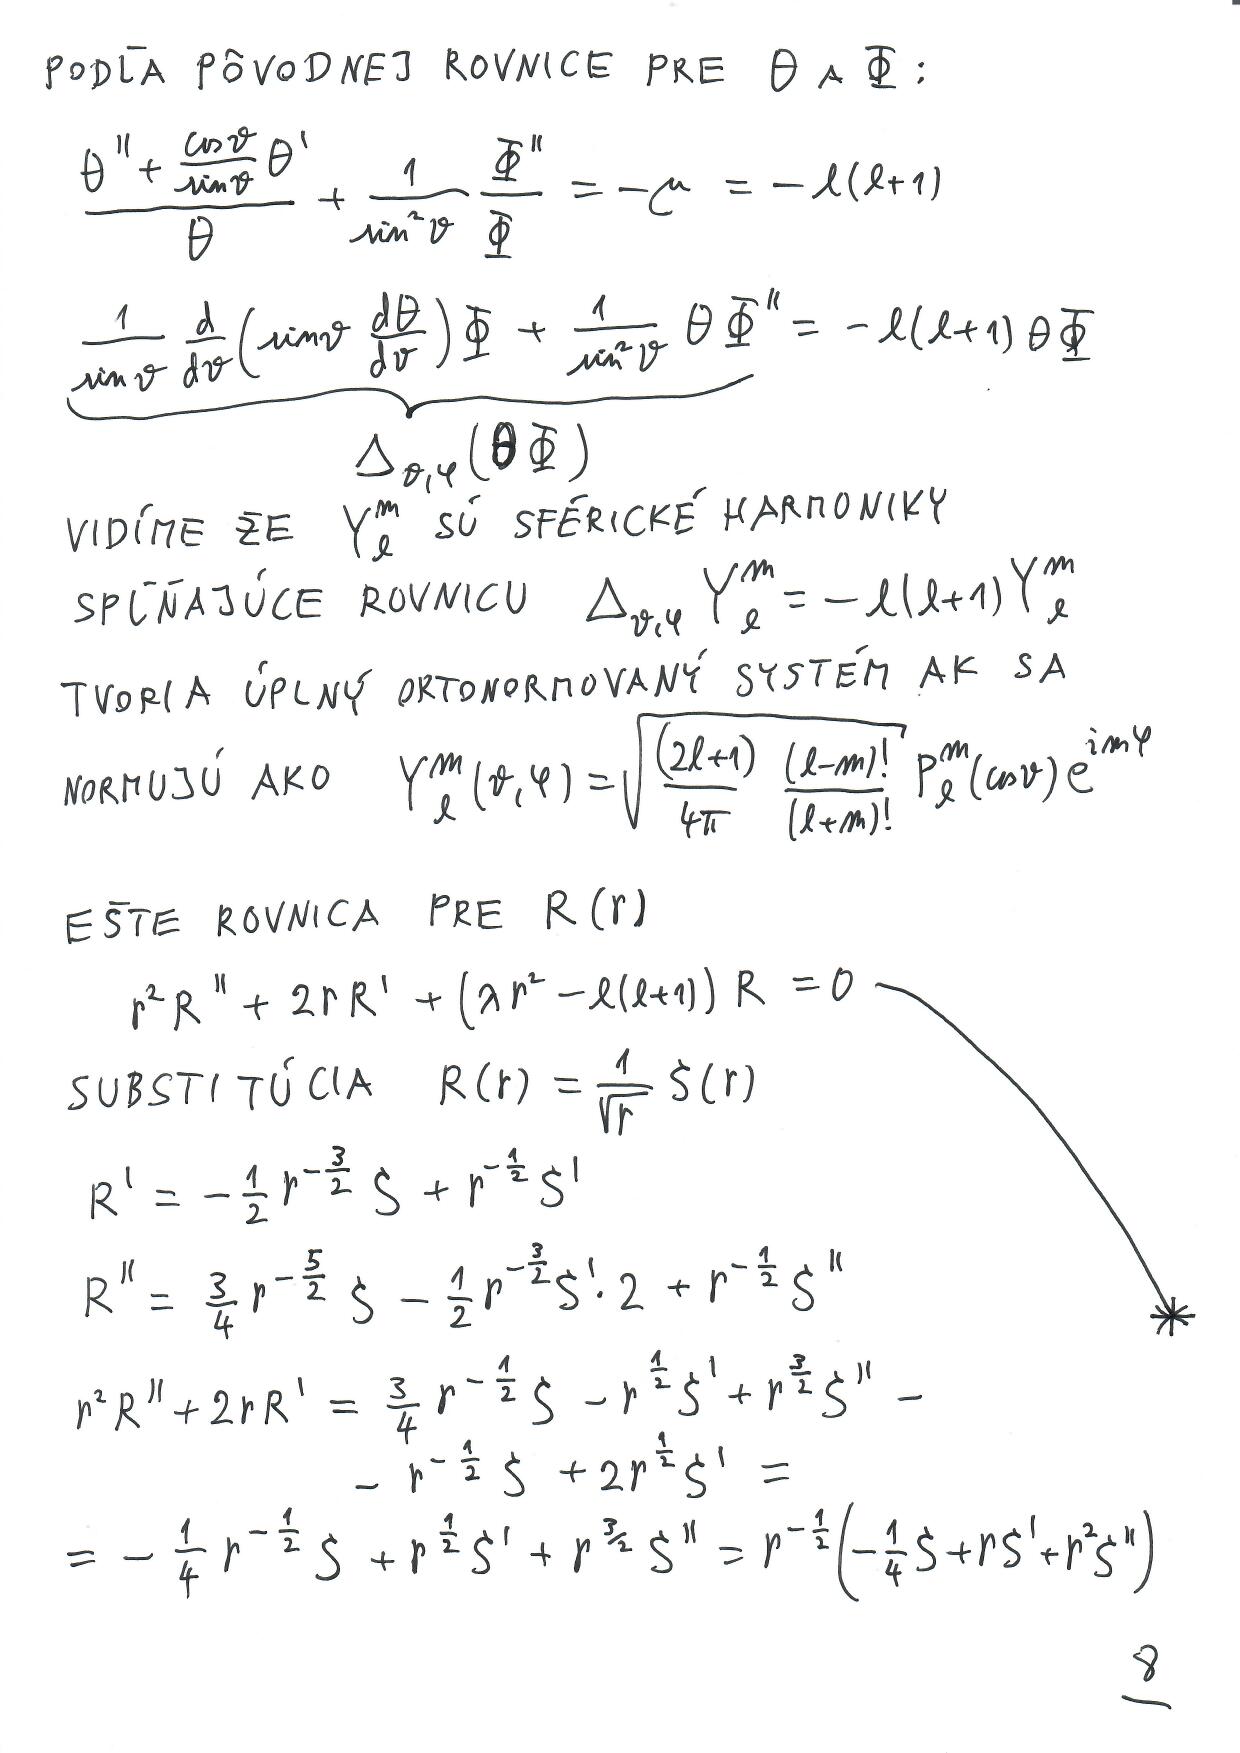 PODĽA PÔVODNEJ ROVNICE PRE θ A Φ :
(θ'' + (cosϑ/sinϑ) θ')/θ + (1/sin²ϑ) (Φ''/Φ) = -μ = -l(l+1)
(1/sinϑ) (d/dϑ) (sinϑ (dθ/dϑ)) Φ + (1/sin²ϑ) θ Φ'' = -l(l+1) θ Φ
Δ_{ϑ,φ} (θ Φ)
VIDÍME ŽE Y_l^m SÚ SFÉRICKÉ HARMONIKY
SPĹŇAJÚCE ROVNICU Δ_{ϑ,φ} Y_l^m = -l(l+1) Y_l^m
TVORIA ÚPLNÝ ORTONORMOVANÝ SYSTÉM AK SA
NORMUJÚ AKO Y_l^m (ϑ,φ) = √((2l+1)/4π (l-m)!/(l+m)!) P_l^m (cosϑ) e^{imφ}
EŠTE ROVNICA PRE R(r)
r²R'' + 2rR' + (λr² - l(l+1)) R = 0
SUBSTITÚCIA R(r) = 1/√r S(r)
R' = -1/2 r^{-3/2} S + r^{-1/2} S'
R'' = 3/4 r^{-5/2} S - 1/2 r^{-3/2} S' · 2 + r^{-1/2} S''
*
r²R'' + 2rR' = 3/4 r^{-1/2} S - r^{1/2} S' + r^{3/2} S'' -
- r^{-1/2} S + 2r^{1/2} S' =
= - 1/4 r^{-1/2} S + r^{1/2} S' + r^{3/2} S'' = r^{-1/2} (-1/4 S + rS' + r²S'')
8